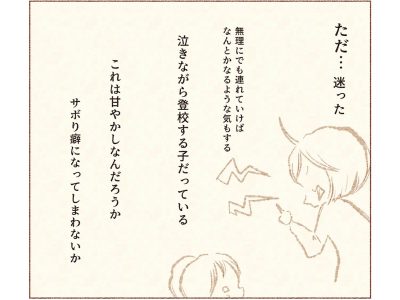 ただ… 迷った
無理にでも連れていけば
なんとかなるような気もする
泣きながら登校する子だっている
これは甘やかしなんだろうか
サボり癖になってしまわないか